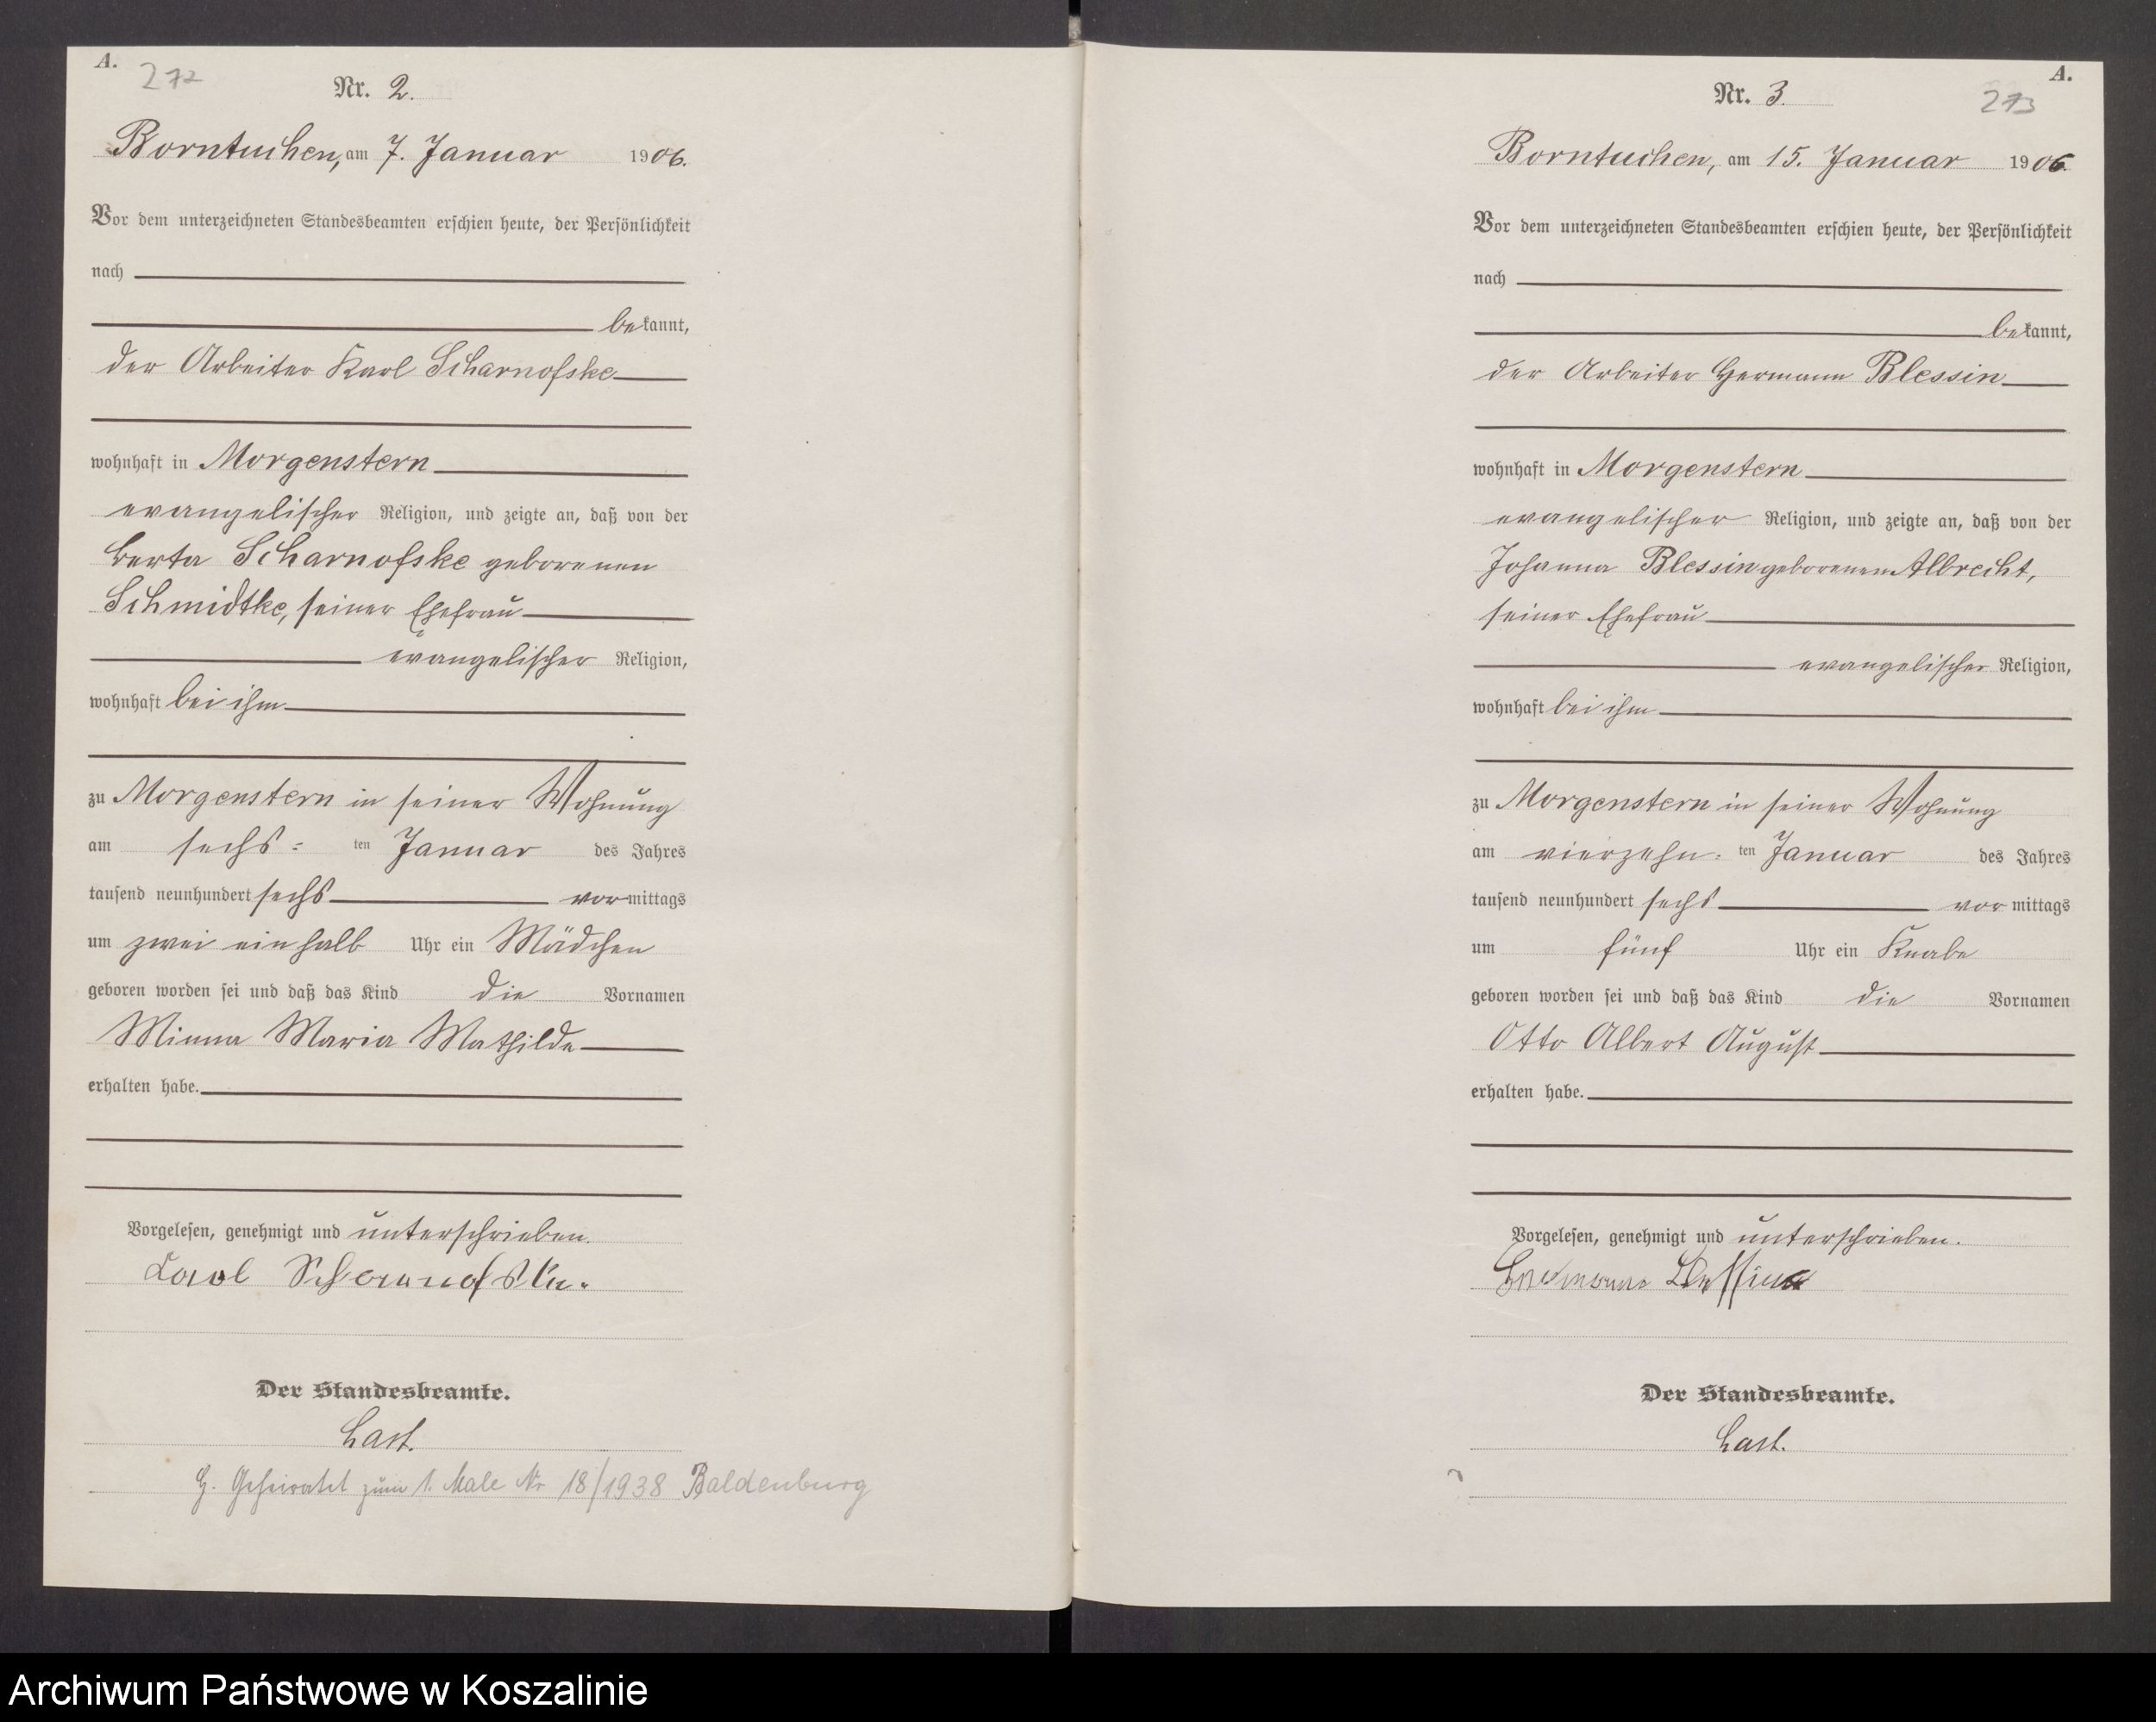 A.
272
Nr. 2.
Borntuchen, am 7. Januar 1906.
Vor dem unterzeichneten Standesbeamten erschien heute, der Persönlichkeit
nach
bekannt,
der Arbeiter Karl Scharnofske
wohnhaft in Morgenstern
evangelischer Religion, und zeigte an, daß von der
Berta Scharnofske geborenen
Schmidtke, seiner Ehefrau
evangelischer Religion,
wohnhaft bei ihm
zu Morgenstern in seiner Wohnung
am sechs= ten Januar des Jahres
tausend neunhundert sechs vormittags
um zwei einhalb Uhr ein Mädchen
geboren worden sei und daß das Kind die Vornamen
Minna Maria Mathilde
erhalten habe.
Vorgelesen, genehmigt und unterschrieben.
Karl Scharnofske.
Der Standesbeamte.
Last.
H. Geheiratet zum 1. Male Nr 18/1938 Baldenburg
A.
273
Nr. 3.
Borntuchen, am 15. Januar 1906
Vor dem unterzeichneten Standesbeamten erschien heute, der Persönlichkeit
nach
bekannt,
der Arbeiter Hermann Blessin
wohnhaft in Morgenstern
evangelischer Religion, und zeigte an, daß von der
Johanna Blessin geborenen Albrecht,
seiner Ehefrau
evangelischer Religion,
wohnhaft bei ihm
zu Morgenstern in seiner Wohnung
am vierzehn= ten Januar des Jahres
tausend neunhundert sechs vormittags
um fünf Uhr ein Knabe
geboren worden sei und daß das Kind die Vornamen
Otto Albert August
erhalten habe.
Vorgelesen, genehmigt und unterschrieben.
Hermann Blessin
Der Standesbeamte.
Last.
Archiwum Państwowe w Koszalinie